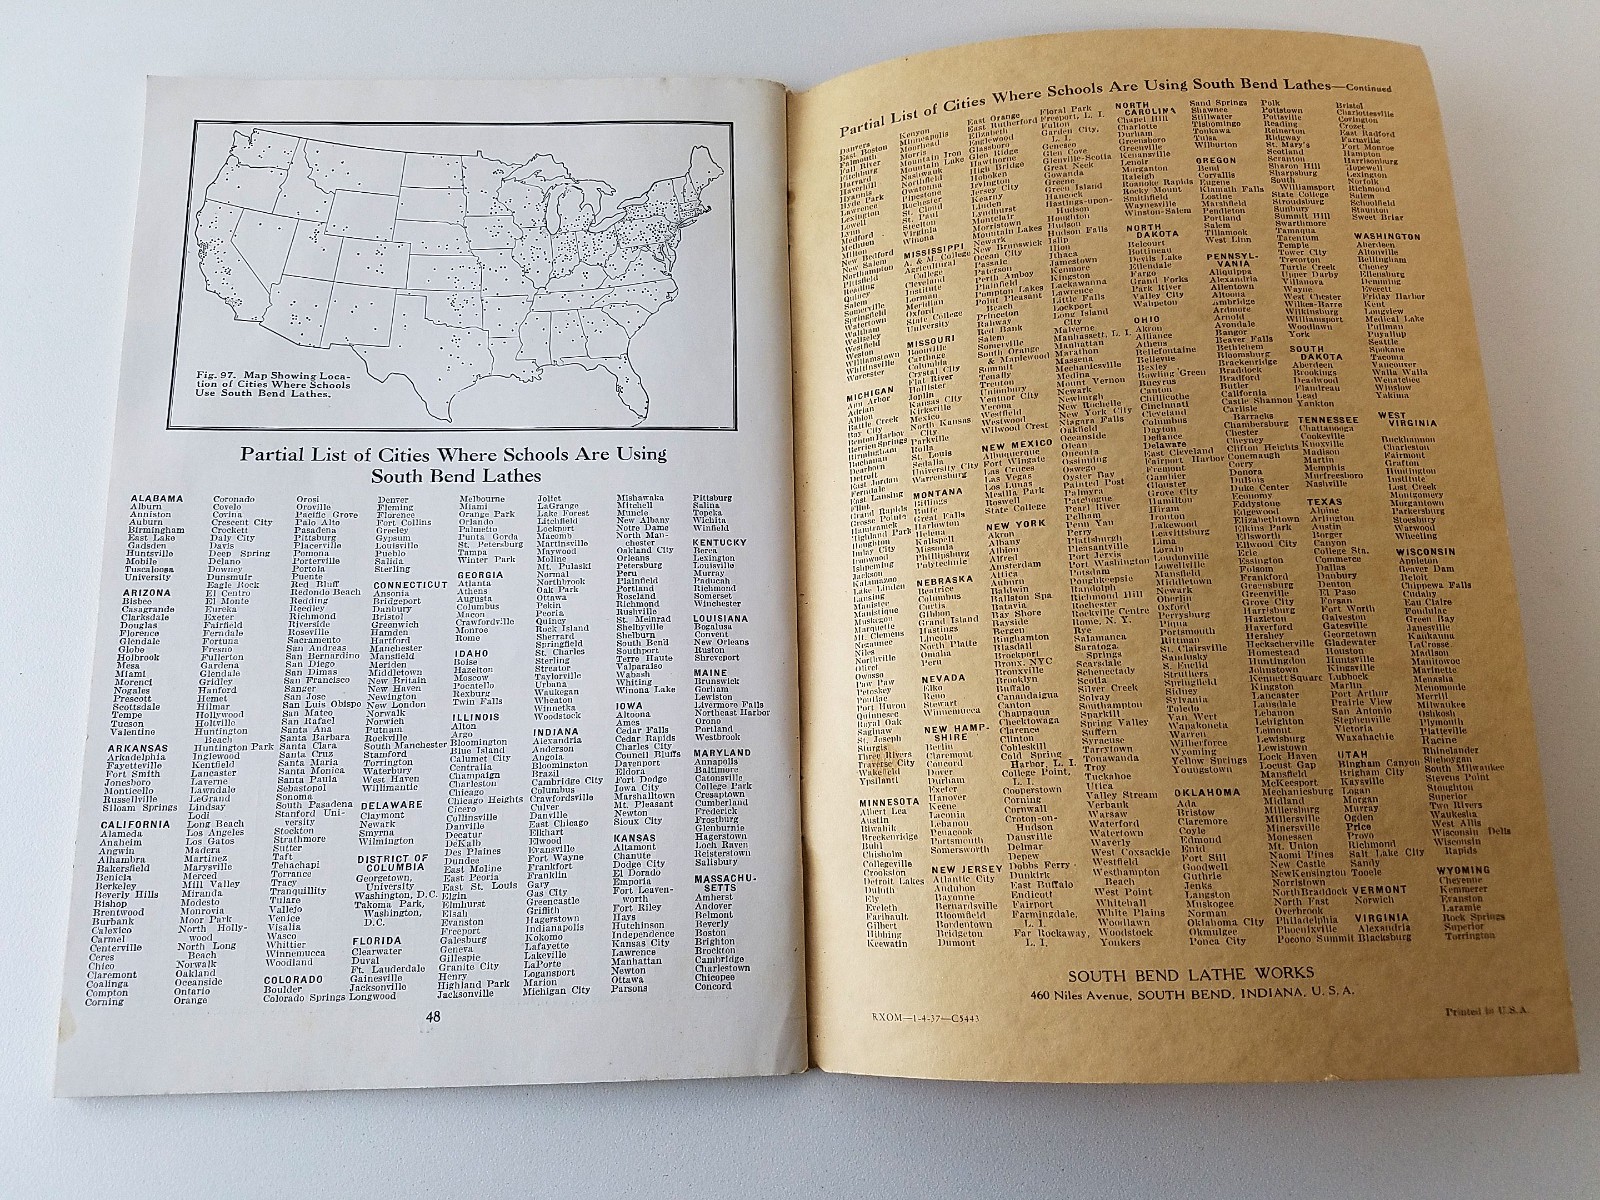 Fig. 97. Map Showing Loca-
tion of Cities Where Schools
Use South Bend Lathes.
Partial List of Cities Where Schools Are Using
South Bend Lathes
ALABAMA
Alburn
Anniston
Auburn
Birmingham
East Lake
Gadsden
Huntsville
Mobile
Tuscaloosa
University
ARIZONA
Bisbee
Casagrande
Clarksdale
Douglas
Florence
Glendale
Globe
Holbrook
Mesa
Miami
Morenci
Nogales
Prescott
Scottsdale
Tempe
Tucson
Valentine
ARKANSAS
Arkadelphia
Fayetteville
Fort Smith
Jonesboro
Monticello
Russellville
Siloam Springs
CALIFORNIA
Alameda
Anaheim
Angwin
Alhambra
Bakersfield
Benicia
Berkeley
Beverly Hills
Bishop
Brentwood
Burbank
Calexico
Carmel
Centerville
Ceres
Chico
Claremont
Coalinga
Compton
Corning
Coronado
Covelo
Corina
Crescent City
Crockett
Daly City
Davis
Deep Spring
Delano
Downey
Dunsmuir
Eagle Rock
El Centro
El Monte
Eureka
Exeter
Fairfield
Ferndale
Fortuna
Fresno
Fullerton
Gardena
Glendale
Gridley
Hanford
Hemet
Hilmar
Hollywood
Holtville
Huntington
Beach
Huntington Park
Inglewood
Kentfield
Lancaster
Laverne
Lawndale
LeGrand
Lindsay
Lodi
Long Beach
Los Angeles
Los Gatos
Madera
Martinez
Marysville
Merced
Mill Valley
Miranda
Modesto
Monrovia
Moor Park
North Holly-
wood
North Long
Beach
Norwalk
Oakland
Oceanside
Ontario
Orange
Orosi
Oroville
Pacific Grove
Palo Alto
Pasadena
Pittsburg
Placerville
Pomona
Porterville
Portola
Puente
Red Bluff
Redondo Beach
Redding
Reedley
Richmond
Riverside
Roseville
Sacramento
San Andreas
San Bernardino
San Diego
San Dimas
San Francisco
Sanger
San Jose
San Luis Obispo
San Mateo
San Rafael
Santa Ana
Santa Barbara
Santa Clara
Santa Cruz
Santa Maria
Santa Monica
Santa Paula
Sebastopol
Sonoma
South Pasadena
Stanford Uni-
versity
Stockton
Strathmore
Sutter
Taft
Tehachapi
Torrance
Tracy
Tranquillity
Tulare
Vallejo
Venice
Visalia
Wasco
Whittier
Winnemucca
Woodland
COLORADO
Boulder
Colorado Springs
Denver
Fleming
Florence
Fort Collins
Greeley
Gypsum
Louisville
Pueblo
Salida
Sterling
CONNECTICUT
Ansonia
Bridgeport
Danbury
Bristol
Greenwich
Hamden
Hartford
Manchester
Mansfield
Meriden
Middletown
New Britain
New Haven
Newington
New London
Norwalk
Norwich
Putnam
Rockville
South Manchester
Stamford
Torrington
Waterbury
West Haven
Willimantic
DELAWARE
Claymont
Newark
Smyrna
Wilmington
DISTRICT OF
COLUMBIA
Georgetown,
University
Washington, D.C.
Takoma Park,
Washington,
D.C.
FLORIDA
Clearwater
Duval
Ft. Lauderdale
Gainesville
Jacksonville
Longwood
Melbourne
Miami
Orange Park
Orlando
Palmetto
Punta Gorda
St. Petersburg
Tampa
Winter Park
GEORGIA
Atlanta
Athens
Augusta
Columbus
Macon
Crawfordville
Monroe
Rome
IDAHO
Boise
Hazelton
Moscow
Pocatello
Rexburg
Twin Falls
ILLINOIS
Alton
Argo
Bloomington
Blue Island
Calumet City
Centralia
Champaign
Charleston
Chicago
Chicago Heights
Cicero
Collinsville
Danville
Decatur
DeKalb
Des Plaines
Dundee
East Moline
East Peoria
East St. Louis
Elgin
Elmhurst
Elsah
Evanston
Freeport
Galesburg
Geneva
Gillespie
Granite City
Henry
Highland Park
Jacksonville
Joliet
LaGrange
Lake Forest
Litchfield
Lockport
Macomb
Martinsville
Maywood
Moline
Mt. Pulaski
Normal
Northbrook
Oak Park
Ottawa
Pekin
Peoria
Quincy
Rock Island
Sherrard
Springfield
St. Charles
Sterling
Streator
Taylorville
Urbana
Waukegan
Wheaton
Winnetka
Woodstock
INDIANA
Alexandria
Anderson
Angola
Bloomington
Brazil
Cambridge City
Columbus
Crawfordsville
Culver
Danville
East Chicago
Elkhart
Elwood
Evansville
Fort Wayne
Frankfort
Franklin
Gary
Gas City
Greencastle
Griffith
Hagerstown
Indianapolis
Kokomo
Lafayette
Lakeville
LaPorte
Logansport
Marion
Michigan City
Mishawaka
Mitchell
Muncie
New Albany
Notre Dame
North Man-
chester
Oakland City
Orleans
Petersburg
Peru
Plainfield
Portland
Roseland
Richmond
Rushville
St. Meinrad
Shelbyville
Shelburn
South Bend
Southport
Terre Haute
Valparaiso
Wabash
Whiting
Winona Lake
IOWA
Altoona
Ames
Cedar Falls
Cedar Rapids
Charles City
Council Bluffs
Davenport
Eldora
Fort Dodge
Iowa City
Marshalltown
Mt. Pleasant
Newton
Sioux City
KANSAS
Altamont
Chanute
Dodge City
El Dorado
Emporia
Fort Leaven-
worth
Fort Riley
Hays
Hutchinson
Independence
Kansas City
Lawrence
Manhattan
Newton
Ottawa
Parsons
Pittsburg
Salina
Topeka
Wichita
Winfield
KENTUCKY
Berea
Lexington
Louisville
Murray
Paducah
Richmond
Somerset
Winchester
LOUISIANA
Bogalusa
Convent
New Orleans
Ruston
Shreveport
MAINE
Brunswick
Gorham
Lewiston
Livermore Falls
Northeast Harbor
Orono
Portland
Westbrook
MARYLAND
Annapolis
Baltimore
Catonsville
College Park
Cresaptown
Cumberland
Frederick
Frostburg
Glenburnie
Hagerstown
Loch Raven
Reisterstown
Salisbury
MASSACHU-
SETTS
Amherst
Andover
Belmont
Beverly
Boston
Brighton
Brockton
Cambridge
Charlestown
Chicopee
Concord
48
Partial List of Cities Where Schools Are Using South Bend Lathes—Continued
Danvers
East Boston
Falmouth
Fall River
Fitchburg
Harvard
Haverhill
Hyannis
Hyde Park
Lawrence
Lexington
Lowell
Lynn
Medford
Methuen
Milton
New Bedford
New Salem
Northampton
Pittsfield
Reading
Quincy
Salem
Somerville
Springfield
Watertown
Waltham
Wellesley
Westfield
Weston
Williamstown
Whitinsville
Worcester
MICHIGAN
Ann Arbor
Adrian
Albion
Battle Creek
Bay City
Benton Harbor
Berrien Springs
Birmingham
Buchanan
Dearborn
Detroit
East Jordan
Ferndale
East Lansing
Flint
Grand Rapids
Grosse Pointe
Hamtramck
Highland Park
Houghton
Imlay City
Ironwood
Ishpeming
Jackson
Kalamazoo
Lake Linden
Lansing
Manistee
Manistique
Marquette
Mt. Clemens
Muskegon
Negaunee
Niles
Northville
Olivet
Owosso
Paw Paw
Petoskey
Pontiac
Port Huron
Quinnesec
Royal Oak
Saginaw
St. Joseph
Sturgis
Three Rivers
Traverse City
Wakefield
Ypsilanti
MINNESOTA
Albert Lea
Austin
Biwabik
Breckenridge
Buhl
Chisholm
Collegeville
Crookston
Detroit Lakes
Duluth
Ely
Eveleth
Faribault
Gilbert
Hibbing
Keewatin
Kenyon
Minneapolis
Moorhead
Morris
Mountain Iron
Mountain Lake
Nashwauk
Northfield
Owatonna
Pipestone
Rochester
St. Cloud
St. Paul
Stephen
Virginia
Winona
MISSISSIPPI
A. & M. College
Agricultural
College
Cleveland
Institute
Lorman
Meridian
Oxford
State College
University
MISSOURI
Boonville
Carthage
Columbia
Crystal City
Flat River
Hollister
Joplin
Kansas City
Kirksville
Mexico
North Kansas
City
Parkville
Rolla
St. Louis
Sedalia
University City
Warrensburg
MONTANA
Billings
Butte
Great Falls
Harlowton
Helena
Kalispell
Missoula
Phillipsburg
Polytechnic
NEBRASKA
Beatrice
Columbus
Curtis
Gibbon
Grand Island
Hastings
Lincoln
North Platte
Omaha
Peru
NEVADA
Elko
Reno
Stewart
Winnemucca
NEW HAMP-
SHIRE
Berlin
Claremont
Concord
Dover
Durham
Exeter
Hanover
Keene
Laconia
Lebanon
Penacook
Portsmouth
Somersworth
NEW JERSEY
Atlantic City
Audubon
Bayonne
Bernardsville
Bloomfield
Bordentown
Bridgeton
Dumont
East Orange
East Rutherford
Elizabeth
Englewood
Glassboro
Glen Ridge
Hawthorne
High Bridge
Hoboken
Irvington
Jersey City
Kearny
Linden
Lyndhurst
Montclair
Morristown
Mountain Lakes
Newark
New Brunswick
Ocean City
Passaic
Paterson
Perth Amboy
Plainfield
Pompton Lakes
Point Pleasant
Beach
Princeton
Rahway
Red Bank
Salem
Somerville
South Orange
& Maplewood
Summit
Tenafly
Trenton
Unionbury
Ventnor City
Verona
Westfield
Westwood
Wilwood Crest
NEW MEXICO
Albuquerque
Fort Wingate
Las Cruces
Las Vegas
Los Lunas
Mesilla Park
Roswell
State College
NEW YORK
Akron
Albany
Albion
Alfred
Amsterdam
Attica
Auburn
Baldwin
Ballston Spa
Batavia
Bay Shore
Bayside
Bergen
Binghamton
Blasdall
Brockport
Bronx, NYC
Bronxville
Brooklyn
Buffalo
Canandaigua
Canton
Chappaqua
Cheektowaga
Clarence
Clinton
Cobleskill
Cold Spring
Harbor, L. I.
College Point,
L. I.
Cooperstown
Corning
Cornwall
Croton-on-
Hudson
Dansville
Delmar
Depew
Dobbs Ferry
Dunkirk
East Buffalo
Endicott
Fairport
Farmingdale,
L. I.
Far Rockaway,
L. I.
Floral Park
Freeport, L. I.
Fulton
Garden City,
L. I.
Genesco
Glen Cove
Glenville-Scotia
Great Neck
Gowanda
Greene
Green Island
Hancock
Hastings-upon-
Hudson
Houghton
Hudson
Hudson Falls
Islip
Ilion
Ithaca
Jamestown
Kenmore
Kingston
Lackawanna
Lawrence
Little Falls
Lockport
Long Island
City
Malverne
Manhassett, L. I.
Manhattan
Marathon
Massena
Mechanicsville
Medina
Mount Vernon
Newark
Newburgh
New Rochelle
New York City
Niagara Falls
Oakfield
Oceanside
Olean
Oneonta
Ossinning
Oswego
Oyster Bay
Painted Post
Palmyra
Patchogue
Pearl River
Pelham
Penn Yan
Perry
Plattsburgh
Pleasantville
Port Jervis
Port Washington
Potsdam
Poughkeepsie
Randolph
Richmond Hill
Rochester
Rockville Centre
Rome, N. Y.
Rye
Salamanca
Saratoga
Springs
Scarsdale
Schenectady
Scotia
Silver Creek
Solvay
Southampton
Sparkill
Spring Valley
Suffern
Syracuse
Tarrytown
Tonawanda
Troy
Tuckahoe
Utica
Valley Stream
Verbank
Warsaw
Waterford
Watertown
Waverly
West Coxsackie
Westfield
Westhampton
Beach
West Point
Whitehall
White Plains
Woodlawn
Woodstock
Yonkers
NORTH
CAROLINA
Chapel Hill
Charlotte
Durham
Greensboro
Greenville
Kenansville
Lenoir
Morganton
Raleigh
Roanoke Rapids
Rocky Mount
Smithfield
Waynesville
Winston-Salem
NORTH
DAKOTA
Belcourt
Bottineau
Devils Lake
Ellendale
Fargo
Grand Forks
Park River
Valley City
Wahpeton
OHIO
Akron
Alliance
Athens
Bellefontaine
Bellevue
Bexley
Bowling Green
Bucyrus
Canton
Chillicothe
Cincinnati
Cleveland
Columbus
Dayton
Defiance
Delaware
East Cleveland
Fairport Harbor
Fremont
Gambier
Glouster
Grove City
Hamilton
Hiram
Ironton
Lakewood
Leavittsburg
Lima
Lorain
Loudonville
Lowellville
Mansfield
Middletown
Newark
Oberlin
Oxford
Perrysburg
Piqua
Portsmouth
Rittman
St. Clairsville
Sandusky
S. Euclid
Struthers
Springfield
Sidney
Sylvania
Toledo
Van Wert
Wapakoneta
Warren
Wilberforce
Wyoming
Yellow Springs
Youngstown
OKLAHOMA
Ada
Bristow
Claremore
Coyle
Edmond
Enid
Fort Sill
Goodwell
Guthrie
Jenks
Langston
Muskogee
Norman
Oklahoma City
Okmulgee
Ponca City
Sand Springs
Shawnee
Stillwater
Tishomingo
Tonkawa
Tulsa
Wilburton
OREGON
Bend
Corvallis
Eugene
Klamath Falls
Lostine
Marshfield
Pendleton
Portland
Salem
Tillamook
West Linn
PENNSYL-
VANIA
Aliquippa
Alexandria
Allentown
Altoona
Ambridge
Ardmore
Arnold
Avondale
Bangor
Beaver Falls
Bethlehem
Bloomsburg
Brackenridge
Braddock
Bradford
Butler
California
Castle Shannon
Carlisle
Barracks
Chambersburg
Chester
Cheyney
Clifton Heights
Conemaugh
Corry
Donora
DuBois
Duke Center
Economy
Eddystone
Edgewood
Elizabethtown
Elkins Park
Ellsworth
Ellwood City
Erie
Essington
Folsom
Frankford
Greensburg
Greenville
Grove City
Harrisburg
Hazleton
Haverford
Hershey
Heckscherville
Homestead
Huntingdon
Johnstown
Kennett Square
Kingston
Lancaster
Lansdale
Lebanon
Lehighton
Lemont
Lewisburg
Lewistown
Lock Haven
Locust Gap
Mansfield
McKeesport
Mechanicsburg
Midland
Millersburg
Millersville
Minersville
Monessen
Mt. Union
Naomi Pines
New Castle
New Kensington
Norristown
North Braddock
North East
Overbrook
Philadelphia
Phoenixville
Pocono Summit
Polk
Pottstown
Pottsville
Reading
Reinerton
Ridgway
St. Mary's
Scotland
Scranton
Sharon Hill
Sharpsburg
South
Williamsport
State College
Stroudsburg
Sunbury
Summit Hill
Swarthmore
Tamaqua
Tarentum
Temple
Tower City
Trevorton
Turtle Creek
Upper Darby
Villanova
Wayne
West Chester
Wilkes-Barre
Wilkinsburg
Williamsport
Woodlawn
York
SOUTH
DAKOTA
Aberdeen
Brookings
Deadwood
Flandreau
Lead
Yankton
TENNESSEE
Chattanooga
Cookeville
Knoxville
Madison
Martin
Memphis
Murfreesboro
Nashville
TEXAS
Alpine
Arlington
Austin
Borger
Canyon
College Sta.
Commerce
Dallas
Danbury
Denton
El Paso
Forsan
Fort Worth
Galveston
Gatesville
Georgetown
Gladewater
Houston
Huntsville
Kingsville
Lubbock
Martin
Port Arthur
Prairie View
San Antonio
Stephenville
Victoria
Waxahachie
UTAH
Bingham Canyon
Brigham City
Kaysville
Logan
Morgan
Murray
Ogden
Price
Provo
Richmond
Salt Lake City
Sandy
Tooele
VERMONT
Norwich
VIRGINIA
Alexandria
Blacksburg
Bristol
Charlottesville
Covington
Crozet
East Radford
Farmville
Fort Monroe
Hampton
Harrisonburg
Hopewell
Lexington
Norfolk
Richmond
Salem
Schoolfield
Staunton
Sweet Briar
WASHINGTON
Aberdeen
Altonville
Bellingham
Cheney
Ellensburg
Demming
Everett
Friday Harbor
Kent
Longview
Medical Lake
Pullman
Puyallup
Seattle
Spokane
Tacoma
Vancouver
Walla Walla
Wenatchee
Winslow
Yakima
WEST
VIRGINIA
Buckhannon
Charleston
Fairmont
Grafton
Huntington
Institute
Lost Creek
Montgomery
Morgantown
Parkersburg
Stoesbury
Warwood
Wheeling
WISCONSIN
Appleton
Beaver Dam
Beloit
Chippewa Falls
Cudahy
Eau Claire
Fond du Lac
Green Bay
Janesville
Kaukauna
LaCrosse
Madison
Manitowoc
Marinette
Menasha
Menomonie
Merrill
Milwaukee
Oshkosh
Plymouth
Platteville
Racine
Rhinelander
Sheboygan
South Milwaukee
Stevens Point
Stoughton
Superior
Two Rivers
Waukesha
West Allis
Wisconsin Dells
Wisconsin
Rapids
WYOMING
Cheyenne
Kemmerer
Evanston
Laramie
Rock Springs
Superior
Torrington
SOUTH BEND LATHE WORKS
460 Niles Avenue, SOUTH BEND, INDIANA, U. S. A.
RXOM—1-4-37—C5443
Printed in U.S.A.